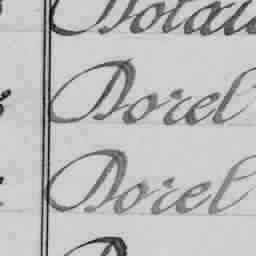 Dorel
Dorel